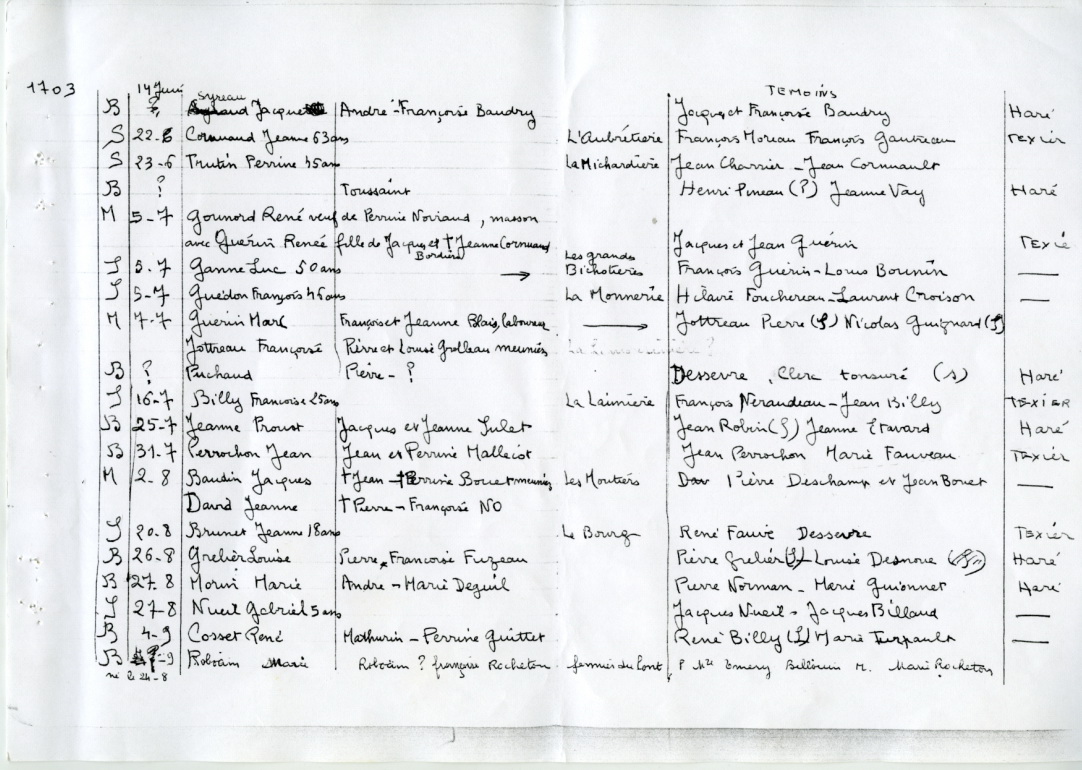 1703 14 Juin TEMOINS
Syreau
B ? Jacques André-Françoise Baudry Jacques et Françoise Baudry Haré
S 22-6 Cornuaud Jeanne 63ans L'Aubrétière François Moreau François Gautreau TEXIER
S 23-6 Trutin Perrine 45ans La Michardière Jean Charrier - Jean Cornuault
B ? Toussaint Henri Pineau (?) Jeanne Vay Haré
M 5-7 Gounord René veuf de Perrine Noriaud, masson
avec Guérin Renée fille de Jacques et † Jeanne Cornuaud Jacques et Jean Guérin TEXIE
Bordière
S 5-7 Ganne Luc 50ans → Les grands Bichotières François Guérin - Louis Bounin —
S 5-7 Guédon François 45ans La Monnerie Hilaire Fouchereau - Laurent Croison —
M 7-7 Guerin Marc François et Jeanne Blais, laboureur → Jottreau Pierre (S) Nicolas Guignard (S)
Jottreau Françoise Pierre et Louise Grolleau meuniers
B ? Puchaud Pierre - ? Desserre, Clerc tonsuré (s) Haré
S 16-7 Billy Francoise 25ans La Lainière François Nerandeau - Jean Billy TEXIER
B 25-7 Jeanne Proust Jacques et Jeanne Julet Jean Robin (S) Jeanne Etavard Haré
B 31-7 Perrochon Jean Jean et Perrine Malleçot Jean Perrochon Marie Fauveau TEXIER
M 2-8 Baudin Jacques † Jean - † Perrine Bouet meunier Les Moutiers Dav Pière Deschamp et Jean Bouet —
David Jeanne † Pierre - Françoise NO
S 20.8 Brunet Jeanne 18ans Le Bourg René Faure Desserre TEXIER
B 26-8 Grelier Louise Pierre, Francoise Fuzeau Pière Grelier (S) - Louise Desnoue Haré
B 27-8 Morin Marie Andre - Marie Deguil Pierre Norman - Merié Guionnet Haré
S 27-8 Nueil Gabriel 5ans Jacques Nueil - Jacques Billaud —
B 4-9 Cosset René Mathurin - Perrine Guittet René Billy (S) Marie Turpault —
B ?-9 Roboam Marie Roboam ? françoise Rocheton fermiers du Pont P Me Emery Bellouin M. Marie Rocheton
né le 24-8